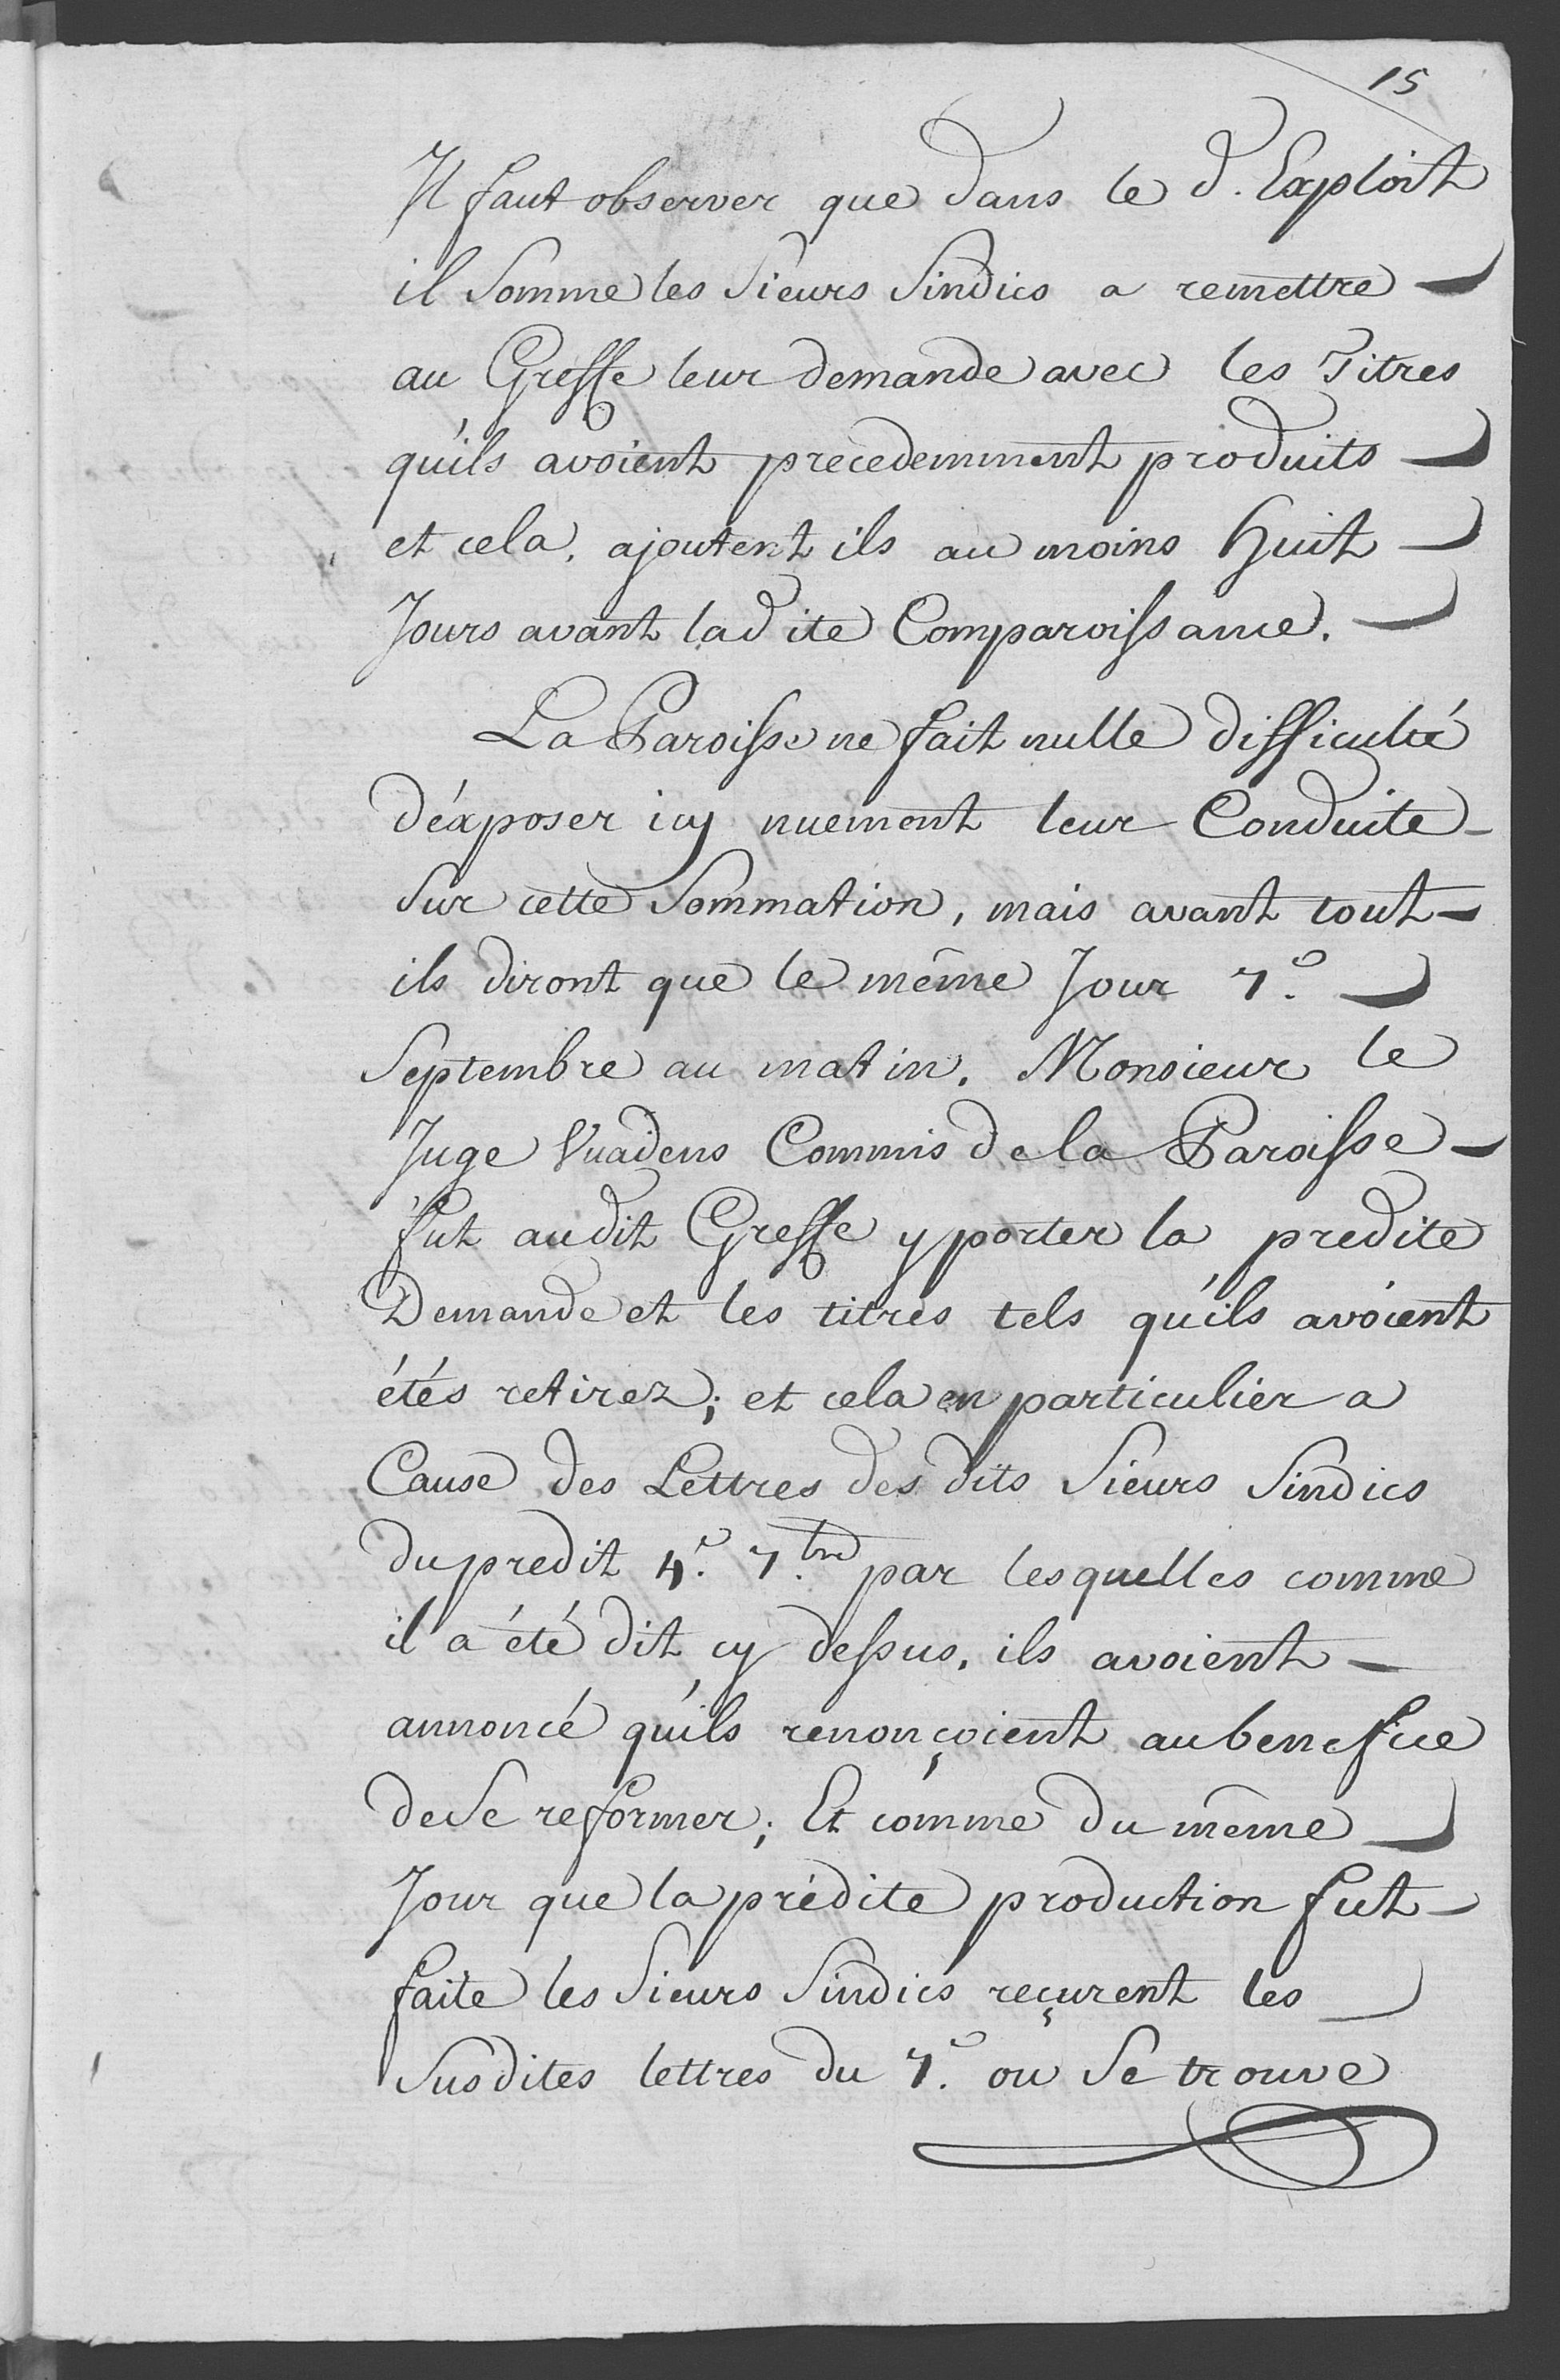 15
Il faut observer que dans le d. Exploit
il Somme les Sieurs Sindics a remettre
au Greffe leur demande avec les Titres
qu'ils avoient précedemment produits
et cela, ajoutent ils au moins huit
Jours avant ladite Comparoissance.
La Paroisse ne fait nulle difficulté
d'éxposer icy nuement leur Conduite
Sur cette Sommation, mais avant tout
ils diront que le même Jour 7.e
Septembre au matin, Monsieur le
Juge Vuadens Commis de la Paroisse
fut audit Greffe y porter la predite
Demande et les titres tels qu'ils avoient
étés retirez; et cela en particulier a
Cause des Lettres des dits Sieurs Sindics
du predit 4.e 7.bre par lesquelles comme
il a été dit cy dessus, ils avoient
annoncé qu'ils renonçoient au benefice
de Se reformer; Et comme du même
Jour que la prédite production fut
faite les Sieurs Sindics reçurent les
Susdites lettres du 7.e ou Se trouve